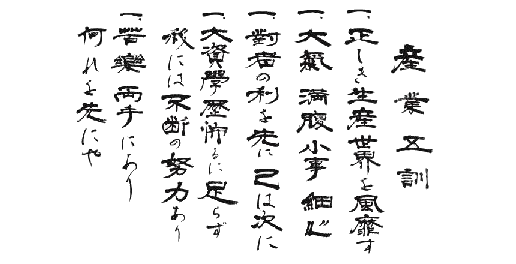 産業五訓
一、正しき生産世界を風靡す
一、大氣満腹小事細心
一、對者の利を先に己は次に
一、大資學歴怖るに足らず
我には不断の努力あり
一、苦樂両手にあり
何れを先にや